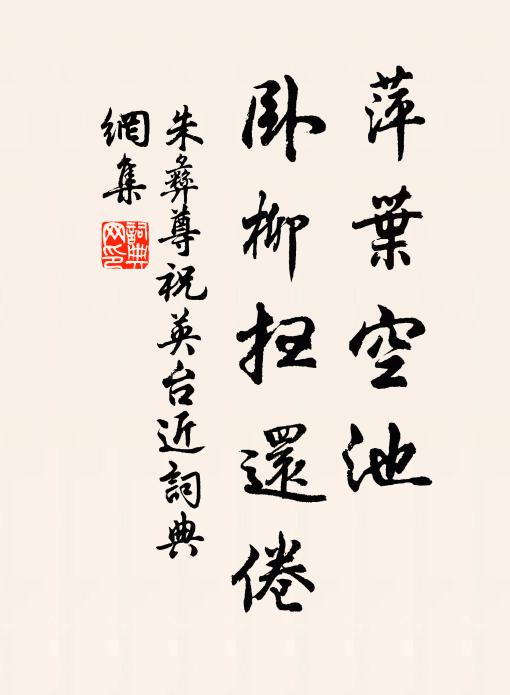 萍葉空池
卧柳掃還倦
朱彝尊祝英台近詞典
網集
詞典
网印